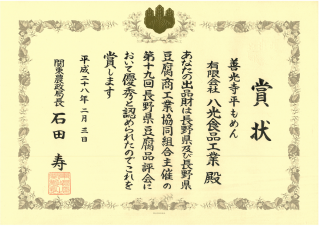 賞状
善光寺平もめん
有限会社 八光食品工業 殿
あなたの出品財は長野県及び長野県
豆腐商工業協同組合主催の
第十九回長野県豆腐品評会に
おいて優秀と認められたのでこれを
賞します
平成二十八年二月三日
関東農政局長 石田 寿